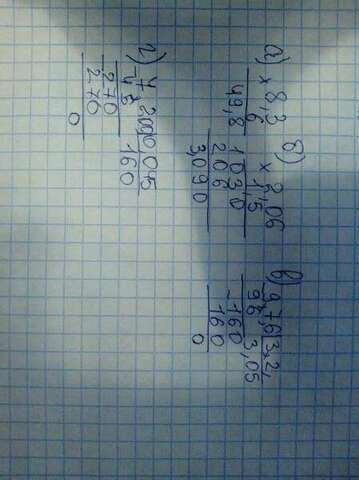 а) × 8,3
6
49,8
б) × 2,06
1,5
1030
206
3,090
в) 9,7,6 3,2,
96 3,05
-160
160
0
г) 7,200 0,045
160
270
270
0